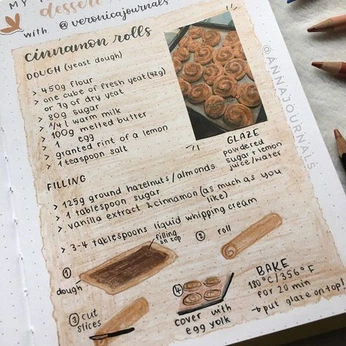 MY
dessert
with @veronicajournals
cinnamon rolls
DOUGH (yeast dough)
> 450g flour
> one cube of fresh yeat (42g)
or 7g of dry yeat
> 80g sugar
> 1/4 L warm milk
> 100g melted butter
> 1 egg
> granted rint of a lemon
> 1 teaspoon salt
GLAZE
powdered
sugar + lemon
juice/water
FILLING
> 125g ground hazelnuts/almonds
> 1 tablespoon sugar
> vanilla extract & cinnamon (as much as you
like)
> 3-4 tablespoons liquid whipping cream
① dough
filling
on top
② roll
③ cut
slices
④ cover with
egg yolk
BAKE
180°C/356°F
for 20 min
→ put glaze on top!
@ANNAJOURNAL